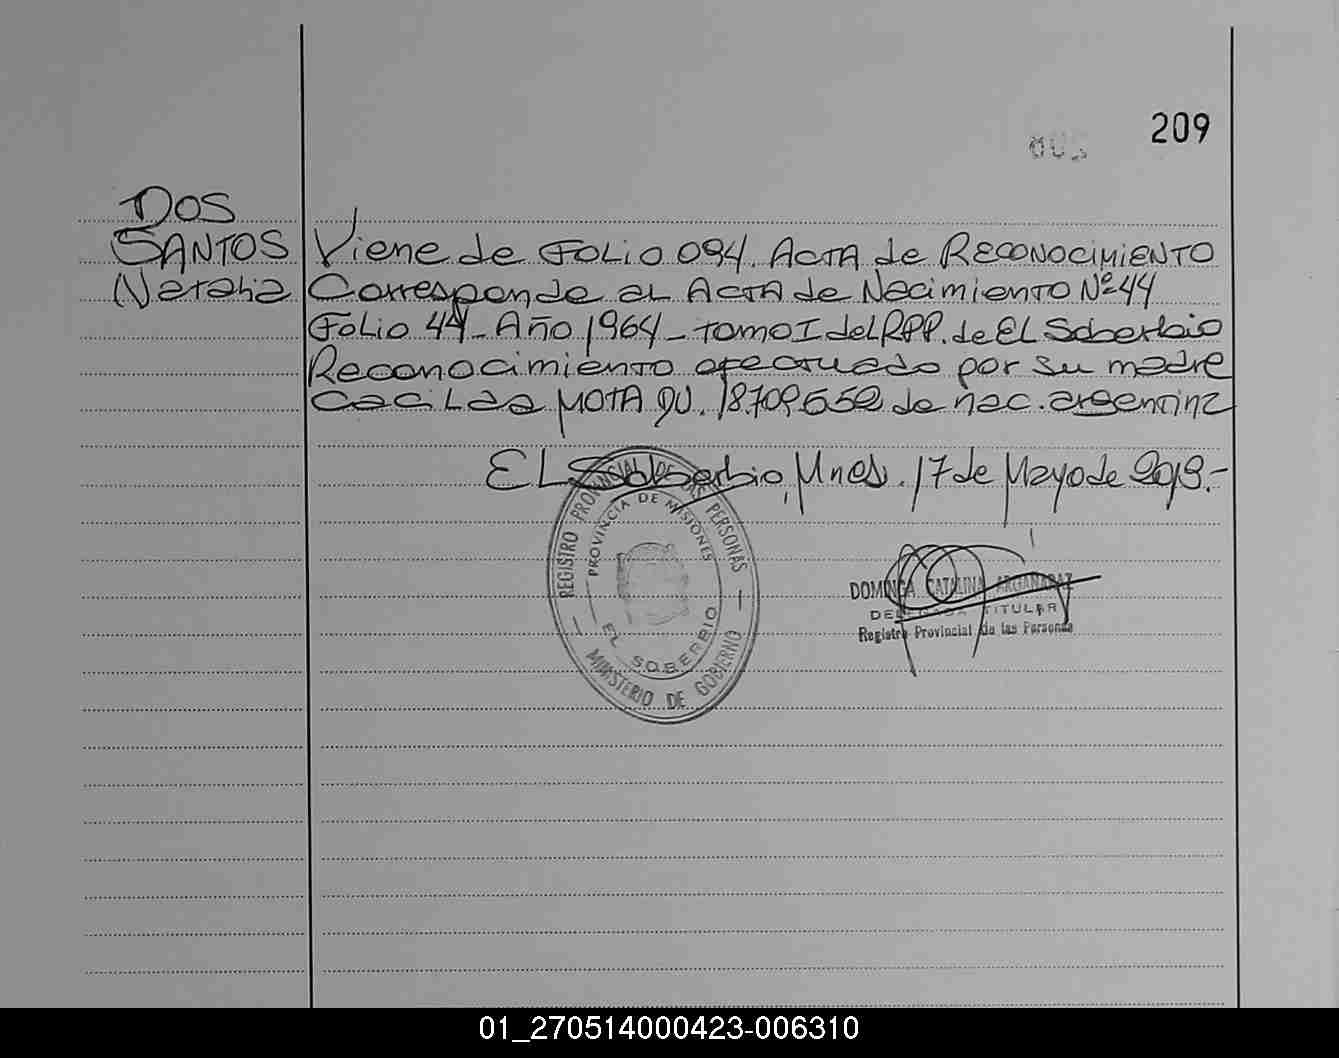 209
DOS
SANTOS
Natalia
Viene de FOLIO 094. ACTA de RECONOCIMIENTO
Corresponde al ACTA de Nacimiento Nº 44
FOLIO 44 - Año 1964 - TOMO I del RPP. de EL Soberbio
Reconocimiento efectuado por su madre
MOTA DU. de nac. argentina
EL Soberbio, Mnes. 17 de Mayo de
REGISTRO PROVINCIAL DE LAS PERSONAS
PROVINCIA DE MISIONES
EL SOBERBIO
MINISTERIO DE GOBIERNO
DOMINGA CATALINA ARGAÑARAZ
DELEGADA TITULAR
Registro Provincial de las Personas
01_270514000423-006310